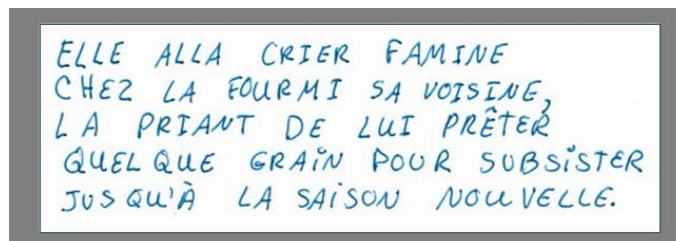 ELLE ALLA CRIER FAMINE
CHEZ LA FOURMI SA VOISINE,
LA PRIANT DE LUI PRÊTER
QUELQUE GRAIN POUR SUBSISTER
JUSQU'À LA SAISON NOUVELLE.